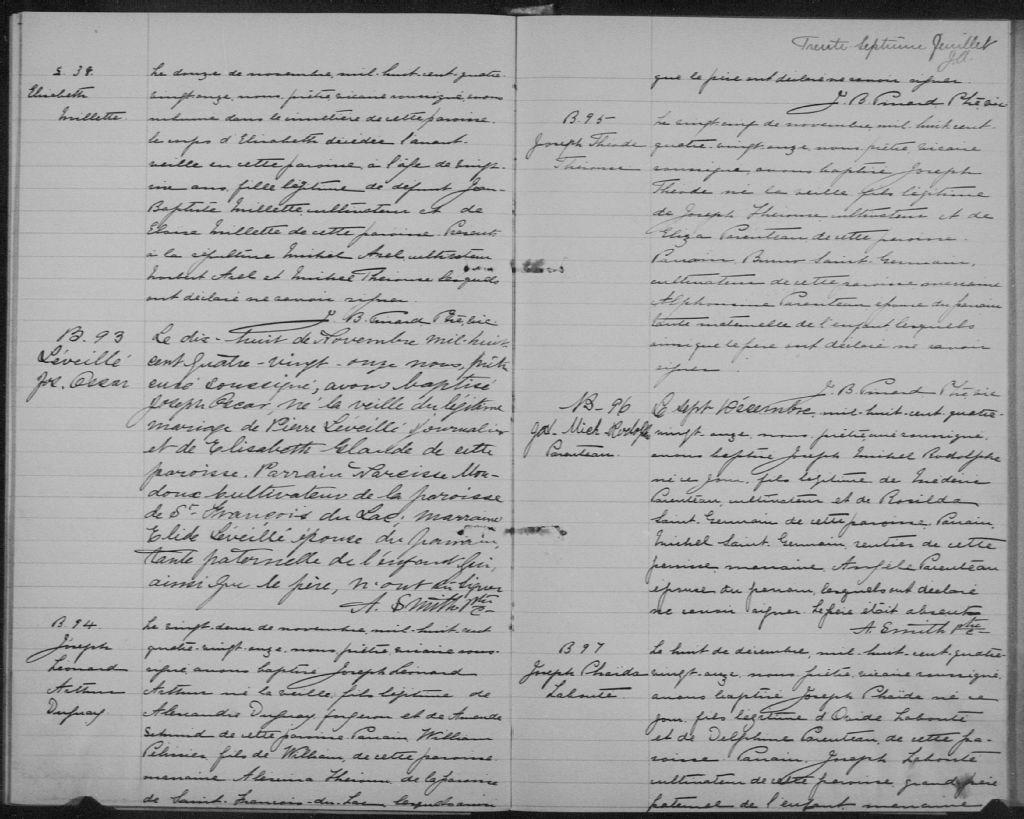 S. 38.
Elisabeth
Millette
Le douze de novembre, mil-huit-cent-quatre-
vingt-onze, nous, prêtre, vicaire soussigné, avons
inhumé dans le cimetière de cette paroisse,
le corps d'Elisabeth décédée l'avant-
veille en cette paroisse à l'âge de vingt-
ans, fille légitime de défunt Jean-
Baptiste Millette, cultivateur et de
Millette de cette paroisse. Présents
à la sépulture Michel Arel, cultivateur
Norbert Arel et Michel Théroux lesquels
ont déclaré ne savoir signer.
J. B. Pinard Ptre, vic
B. 93
Léveillé
Jos. Oscar
Le dix-huit de Novembre mil-huit
cent quatre-vingt-onze nous, prêtre
curé soussigné, avons baptisé
Joseph Oscar, né la veille du légitime
mariage de Pierre Léveillé journalier
et de Elisabeth de cette
paroisse. Parrain Narcisse Mon-
doux cultivateur de la paroisse
de St. François du Lac, marraine
Elide Léveillé épouse du parrain,
tante paternelle de l'enfant qui,
ainsi que le père, n'ont su signer
A. Smith Ptre
B. 94
Joseph
Léonard
Arthur
Duguay
Le vingt-deux de novembre, mil-huit-cent
quatre-vingt-onze, nous, prêtre, vicaire sous-
signé, avons baptisé Joseph Léonard
Arthur né la veille, fils légitime de
Alexandre Duguay, forgeron et de Amanda
de cette paroisse Parrain, William
fils de William, de cette paroisse
marraine Théroux, de la paroisse
de Saint-François-du-Lac lesquels ainsi
Trente-Septième feuillet
J.A.
que le père ont déclaré ne savoir signer.
J. B. Pinard Ptre, vic
B. 95
Joseph Théode
Théroux
Le vingt-neuf de novembre, mil-huit-cent-
quatre-vingt-onze, nous, prêtre, vicaire
soussigné, avons baptisé Joseph
Théode né la veille fils légitime
de Joseph Théroux, cultivateur et de
Eliza Parenteau, de cette paroisse.
Parrain, Bruno Saint-Germain,
cultivateur de cette paroisse marraine
Alphonsine Parenteau épouse du parrain
tante maternelle de l'enfant lesquels
ainsi que le père ont déclaré ne savoir
signer.
J. B. Pinard Ptre, vic
B. 96
Jos. Mich. Rodolphe
Parenteau.
Le sept Décembre, mil-huit-cent-quatre-
vingt-onze, nous, prêtre, curé soussigné,
avons baptisé Joseph Michel Rodolphe
né ce jour, fils légitime de Médéric
Parenteau, cultivateur et de Rosilda
Saint-Germain de cette paroisse. Parrain,
Michel Saint-Germain, rentier de cette
paroisse, marraine, Angèle Parenteau
épouse du parrain, lesquels ont déclaré
ne savoir signer. Le père était absent
A. Smith Ptre
B. 97
Joseph Phaida
Labonté
Le huit de décembre, mil-huit-cent-quatre-
vingt-onze, nous, prêtre, vicaire soussigné,
avons baptisé Joseph Phaida né ce
jour, fils légitime d'Ovide Labonté
et de Delphine Parenteau, de cette pa-
roisse. Parrain, Joseph Labonté
cultivateur de cette paroisse, grand-père
paternel de l'enfant, marraine